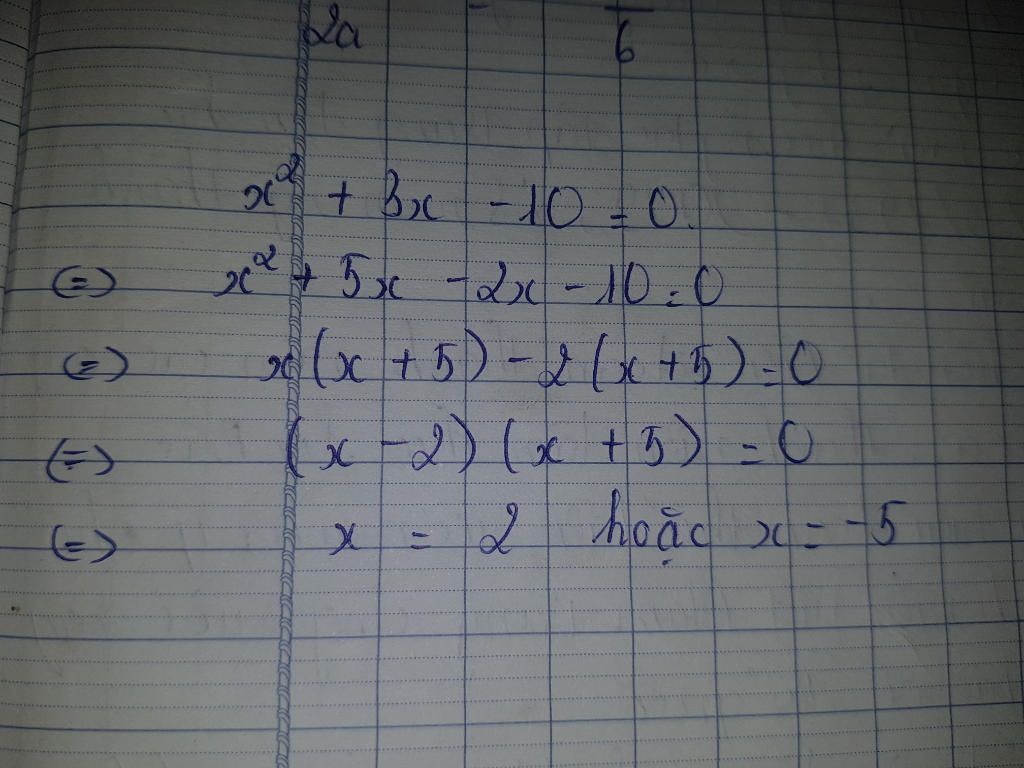 2a 6
x² + 3x - 10 = 0.
(=) x² + 5x - 2x - 10 = 0
(=) x(x + 5) - 2(x + 5) = 0
(=) (x - 2)(x + 5) = 0
(=) x = 2 hoặc x = -5